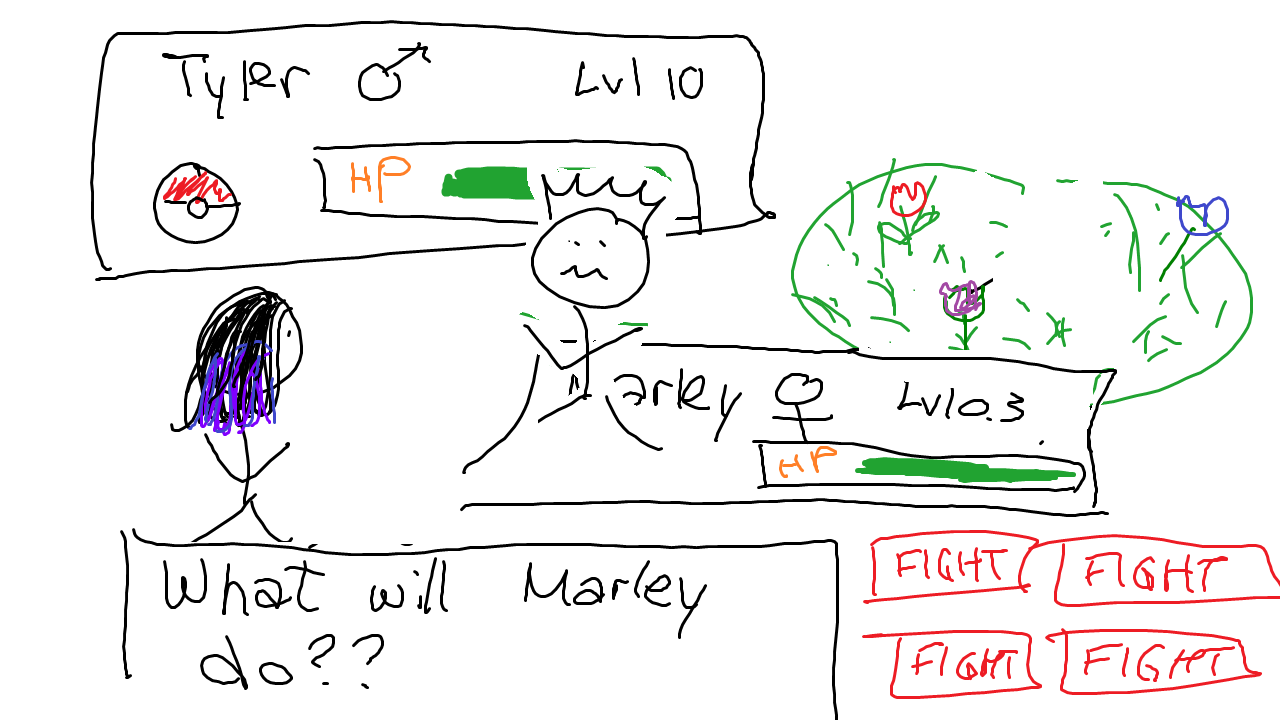 Tyler ♂ Lvl 10
HP
Marley ♀ Lvl 0.3
HP
What will Marley
do??
FIGHT FIGHT
FIGHT FIGHT